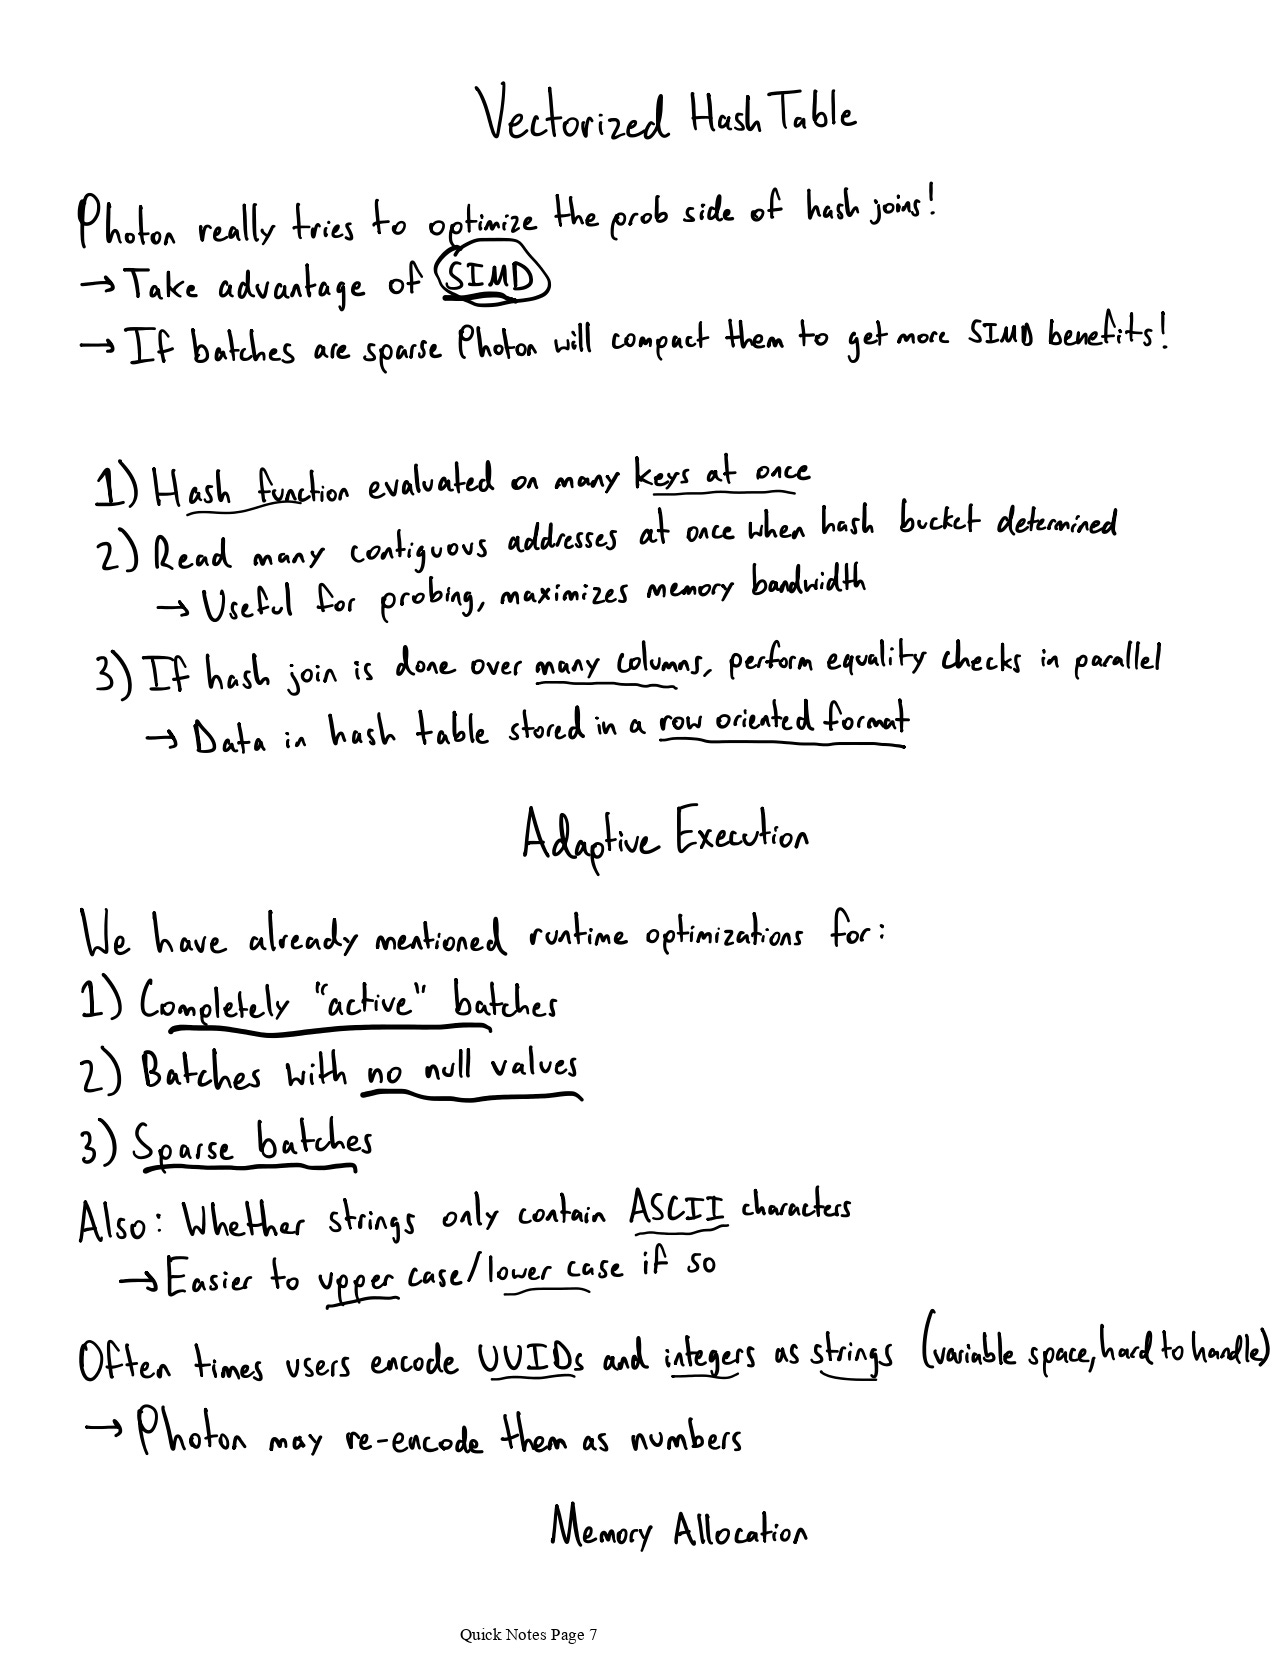 Vectorized Hash Table
Photon really tries to optimize the prob side of hash joins!
→ Take advantage of SIMD
→ If batches are sparse Photon will compact them to get more SIMD benefits!
1) Hash function evaluated on many keys at once
2) Read many contiguous addresses at once when hash bucket determined
→ Useful for probing, maximizes memory bandwidth
3) If hash join is done over many columns, perform equality checks in parallel
→ Data in hash table stored in a row oriented format
Adaptive Execution
We have already mentioned runtime optimizations for:
1) Completely "active" batches
2) Batches with no null values
3) Sparse batches
Also: Whether strings only contain ASCII characters
→ Easier to upper case/lower case if so
Often times users encode UUIDs and integers as strings (variable space, hard to handle)
→ Photon may re-encode them as numbers
Memory Allocation
Quick Notes Page 7